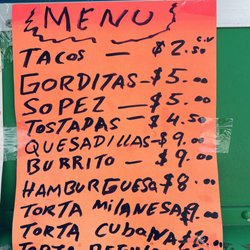 MENU
TACOS - $2.50 c/u
GORDITAS - $5.00
SOPEZ - $5.00
TOSTADAS - $4.50
QUESADILLAS - $9.00
BURRITO - $9.00
HAMBURGUESA $8.00
TORTA MILANESA $9.00
TORTA CUBANA $10.00
TORTA